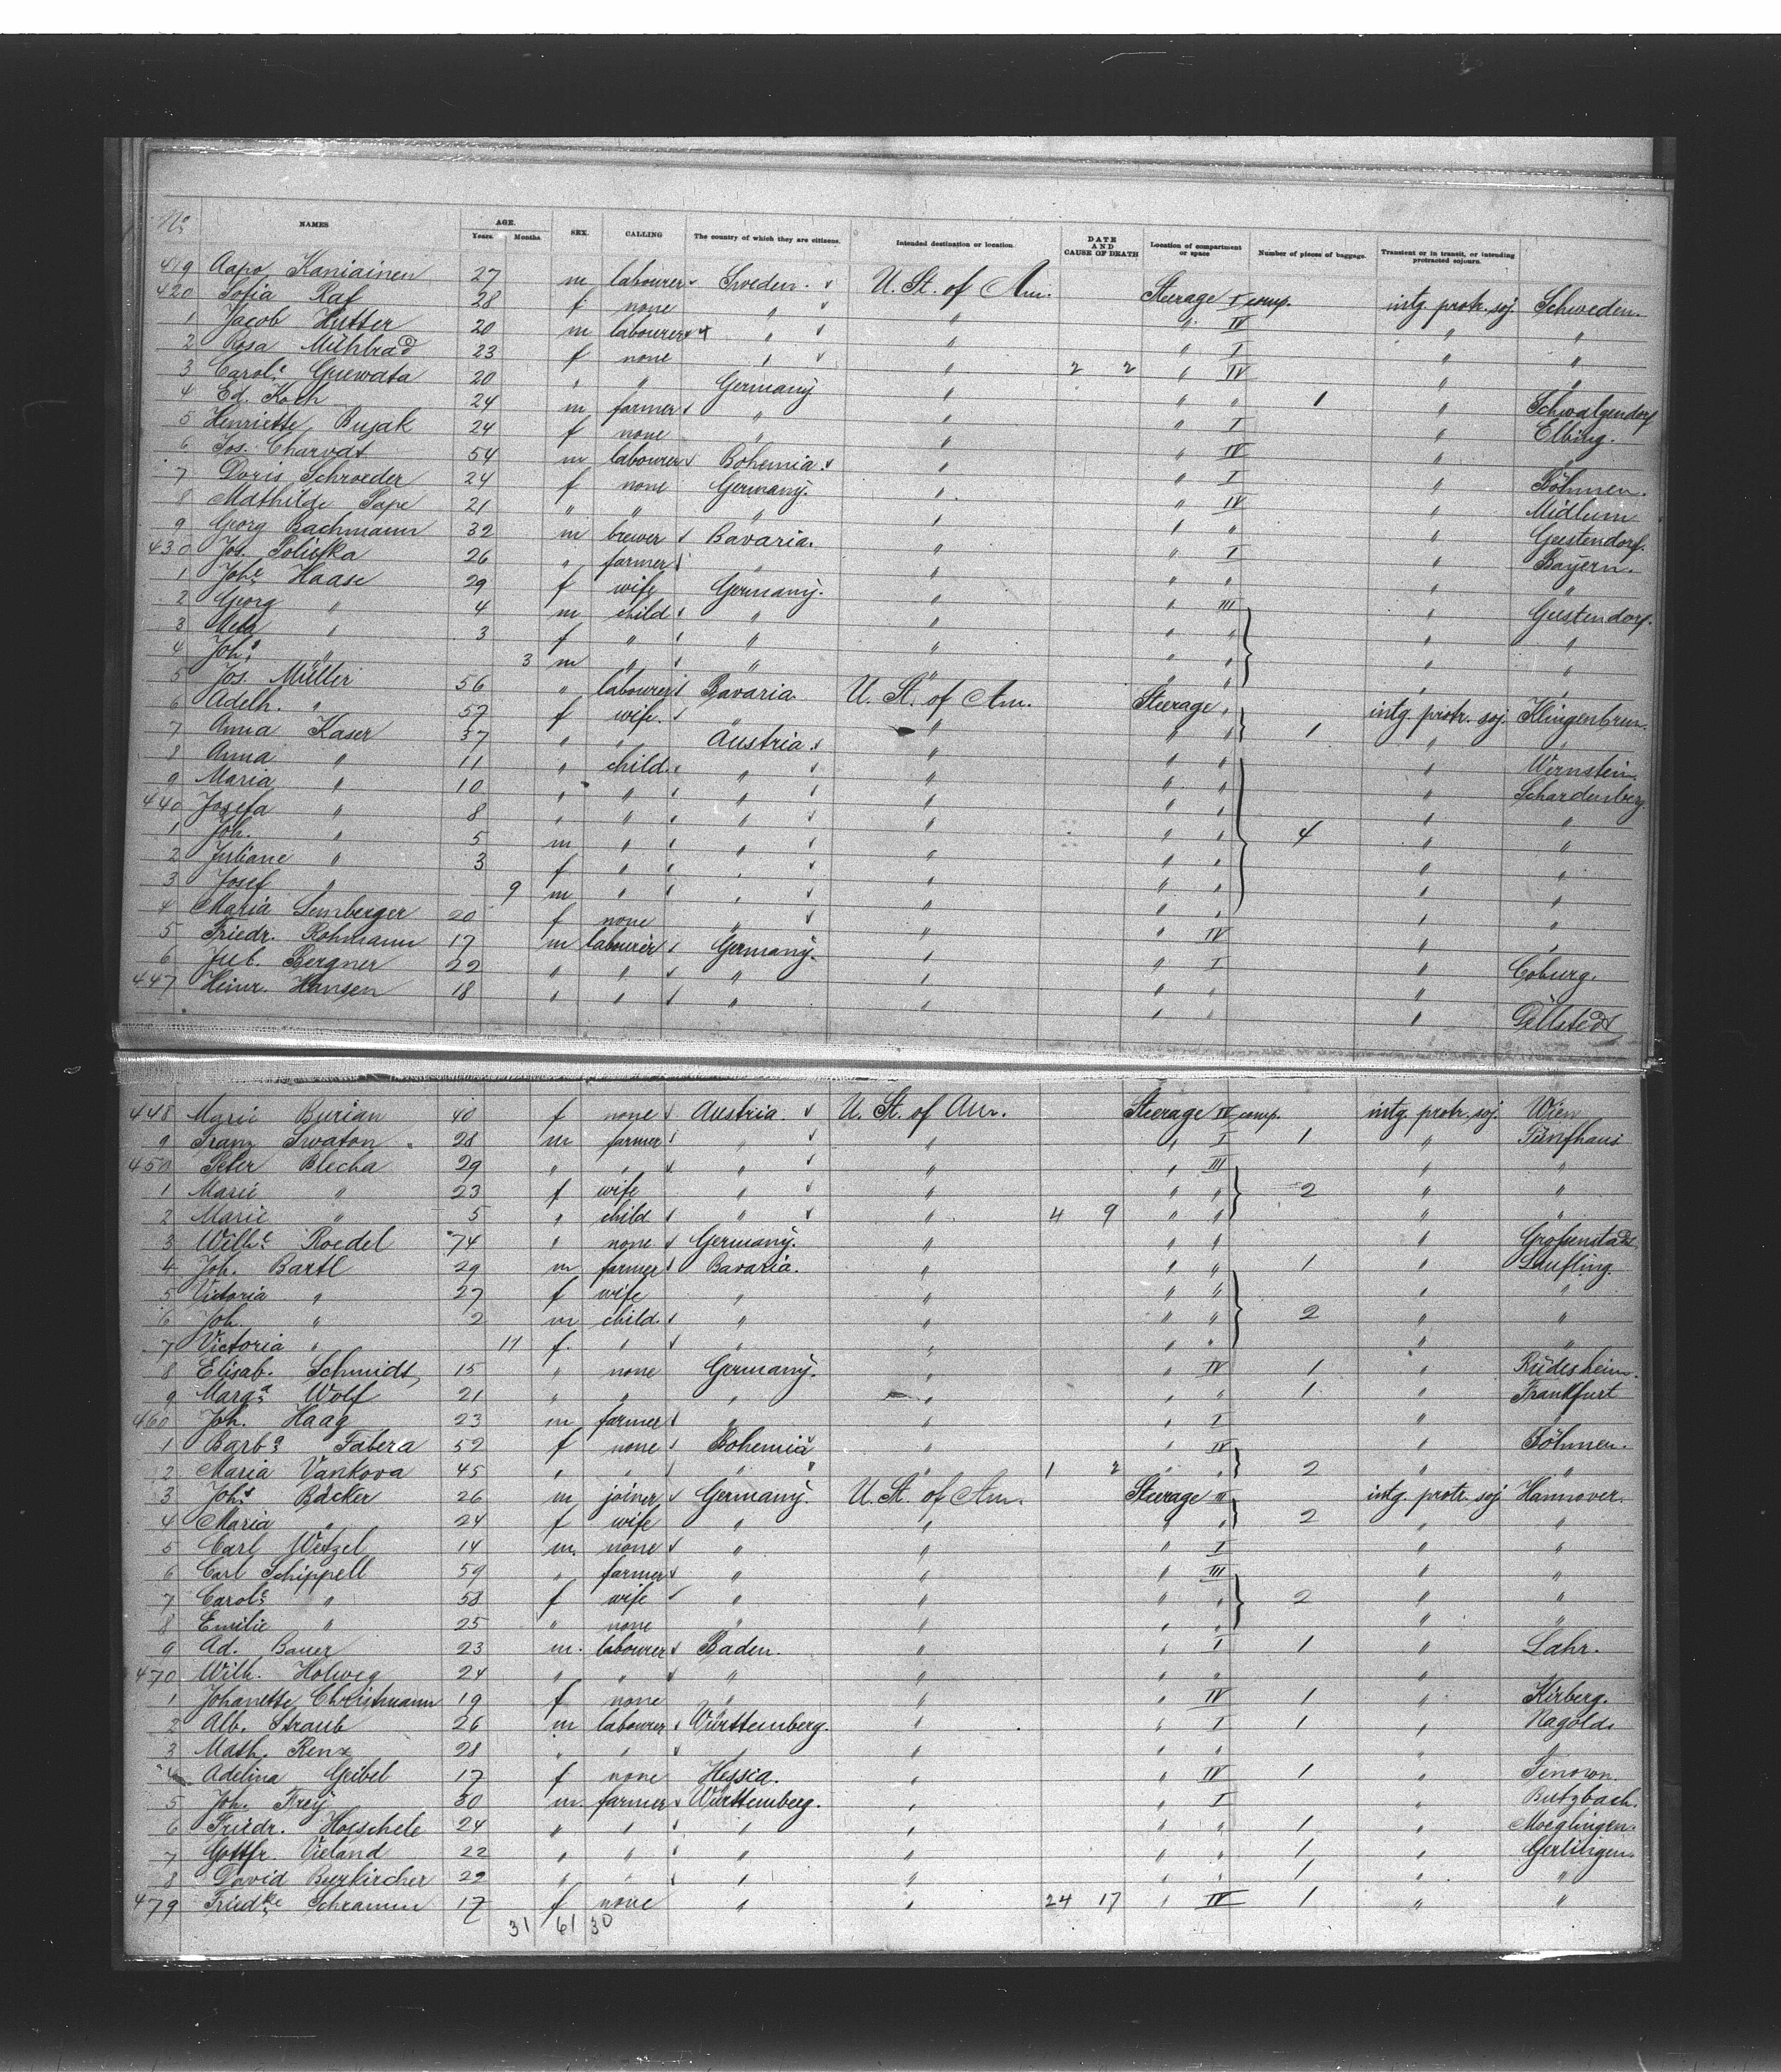 No. NAMES AGE. Years. Months. SEX. CALLING The country of which they are citizens. Intended destination or location DATE AND CAUSE OF DEATH Location of compartment or space Number of pieces of baggage. Transient or in transit, or intending protracted sojourn.
419 Aapo Kaniainen 27 m labourer Sweden. U. St. of Am. Steerage I comp. intg. protr. soj. Schweden.
420 Sofia Raf 28 f none " " " IV " "
1 Jacob Hutter 20 m labourer " " " I " "
2 Rosa Mühlrad 23 f none " " 2 2 " IV " "
3 Carole Gnewata 20 " " Germany " " " 1 " Schwalgendorf
4 Ed. Koch 24 m farmer " " " I " Elbing.
5 Henriette Bujak 24 f none " " " IV " "
6 Jos. Charvat 54 m labourer Bohemia. " " I " Böhmen.
7 Doris Schroeder 24 f none Germany. " " IV " Midlum
8 Mathilde Pape 21 " " " " " " " Geestendorf.
9 Georg Bachmann 32 m brewer Bavaria. " " I " Bayern.
430 Jos. Polifka 26 " farmer " " " " " "
1 Johe Haase 29 f wife Germany. " " III " Geestendorf.
2 Georg " 4 m child " " " " " "
3 Meta " 3 f " " " " " " "
4 Johs " 3 m " " " " " " "
5 Jos. Müller 56 " labourer Bavaria U. St. of Am. Steerage " intg. protr. soj. Klingenbrun.
6 Adelh. " 57 f wife. " " " " 1 " "
7 Anna Kaser 37 " " Austria. " " " " Wernstein.
8 Anna " 11 " child. " " " " " Schardenberg
9 Maria " 10 " " " " " " " "
440 Josefa " 8 " " " " " " 4 " "
1 Joh. " 5 m " " " " " " "
2 Juliane " 3 f " " " " " " "
3 Josef " 9 m " " " " " " "
4 Maria Lemberger 20 f none " " " IV " "
5 Friedr. Rohmann 17 m labourer Germany. " " I " Coburg.
6 Jul. Bergner 22 " " " " " " "
447 Heinr. Hansen 18 " " " " " " " Döllstedt
448 Marie Burian 40 f none Austria U. St. of Am. Steerage IV comp. intg. protr. soj. Wien
9 Franz Swaton 28 m farmer " " " I 1 " Fünfhaus
450 Peter Blecha 29 " " " " " III " "
1 Marie " 23 f wife " " " " 2 " "
2 Marie " 5 " child " " 4 9 " " " "
3 Wilhe Roedel 74 " none Germany. " " " " Großenstadt
4 Joh. Bartl 29 m farmer Bavaria. " " " 1 " Laufling.
5 Victoria " 27 f wife " " " " " "
6 Joh. " 2 m child. " " " " 2 " "
7 Victoria " 11 f. " " " " " " "
8 Elisab. Schmidt 15 " none Germany. " " IV 1 " Rüdesheim.
9 Marga Wolf 21 " " " " " " 1 " Frankfurt
460 Joh. Haag 23 m farmer " " " I " "
1 Barba Fabera 52 f none Bohemia " " IV " Böhmen.
2 Maria Vankova 45 " " " " 1 2 " " 2 " "
3 Johs Bäcker 26 m joiner Germany. U. St. of Am. Steerage III intg. protr. soj Hannover.
4 Maria " 24 f wife " " " " 2 " "
5 Carl Wetzel 14 m. none " " " I " "
6 Carl Schippell 59 " farmer " " " III " "
7 Carole " 58 f wife " " " " 2 " "
8 Emilie " 25 " none " " " " " "
9 Ad. Bauer 23 m. labourer Baden. " " I 1 " Lahr.
470 Wilh. Holweg 24 " " " " " " " "
1 Johanette Christmann 19 f none " " " IV 1 " Kirberg.
2 Alb. Straub 26 m labourer Württemberg. " " I 1 " Nagold.
3 Math. Renz 28 " " " " " " " "
4 Adelina Geibel 17 f none Hessia. " " IV 1 "
5 Joh. Frey 30 m. farmer Württemberg. " " I " Butzbach.
6 Friedr. Hoeschele 24 " " " " " " 1 " Moeglingen.
7 Gottfr. Vieland 22 " " " " " " 1 " Gerlingen.
8 David Beerkircher 22 " " " " " " 1 " "
479 Friedke Schramm 17 f none " " 24 17 " IV 1 " "
31 61 30